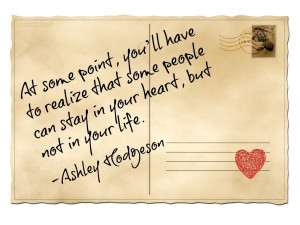 At some point, you'll have
to realize that some people
can stay in your heart, but
not in your life.
-Ashley Hodgeson